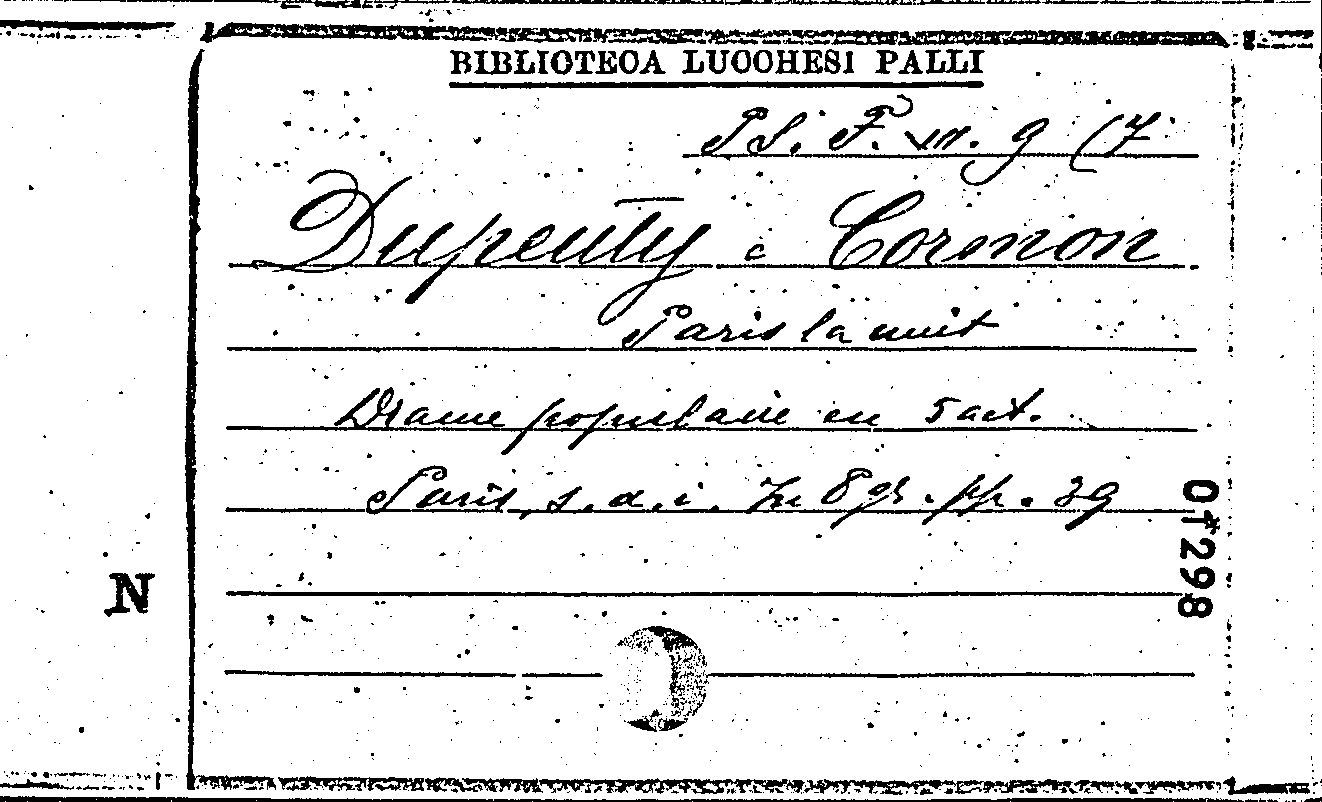 BIBLIOTECA LUCCHESI PALLI
P S. F. VII. 9 (7
Dupeuty e Cormon
Paris la nuit
Drame populaire en 5 act.
Paris, s. d. i. In 8 gr. pp. 29
N
01298